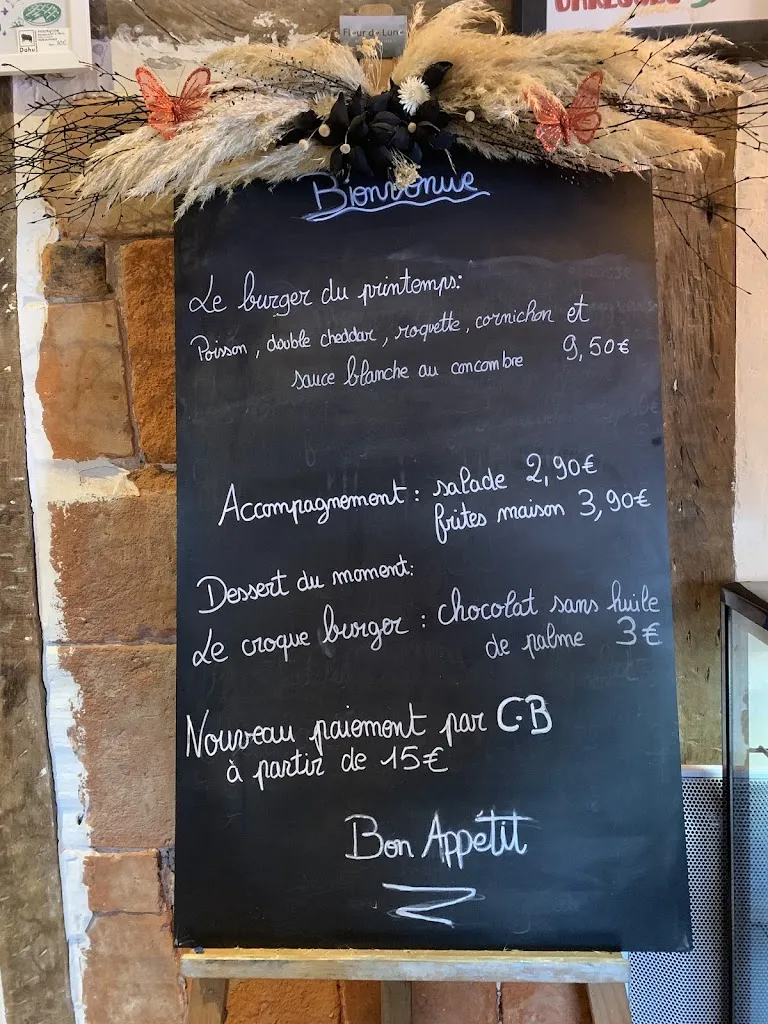 Dahu
Fleur de Lune
Bienvenue
Le burger du printemps:
Poisson, double cheddar, roquette, cornichon et
sauce blanche au concombre 9,50€
Accompagnement : salade 2,90€
frites maison 3,90€
Dessert du moment:
Le croque burger : chocolat sans huile
de palme 3€
Nouveau paiement par C.B
à partir de 15€
Bon Appétit